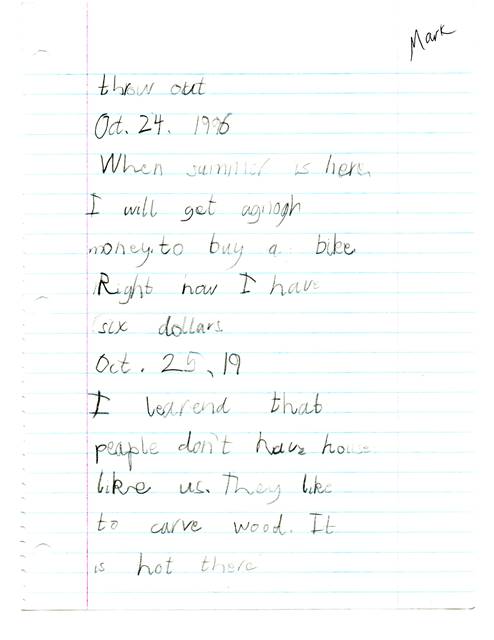 Mark
throw out
Oct. 24. 1996
When summer is here
I will get aginogh
money.to buy a bike
Right now I have
six dollars
Oct. 25, 19
I learend that
peaple don't have house
like us. They like
to carve wood. It
is hot there